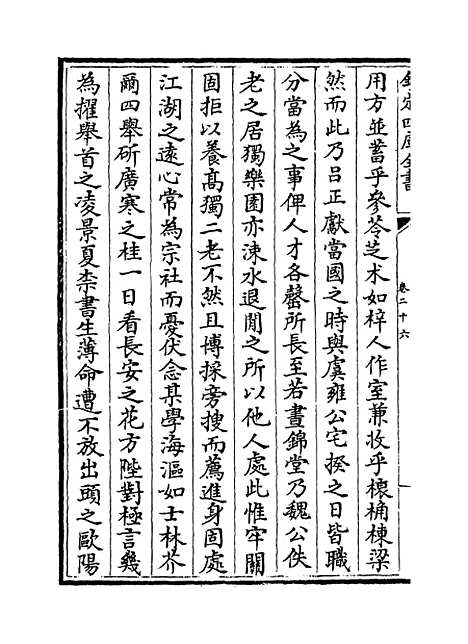 欽定四庫全書
卷二十六
用方並蓄乎參苓芝术如梓人作室兼收乎榱桷棟梁
然而此乃吕正獻當國之時與虞雍公宅揆之日皆職
分當為之事俾人才各罄所長至若晝錦堂乃魏公佚
老之居獨樂園亦涑水退閒之所以他人處此惟牢關
固拒以養髙獨二老不然且博採旁搜而薦進身固處
江湖之遠心常為宗社而憂伏念某學海漚如士林芥
爾四舉斫廣寒之桂一日看長安之花方陛對極言幾
為擢舉首之凌景夏柰書生薄命遭不放出頭之歐陽